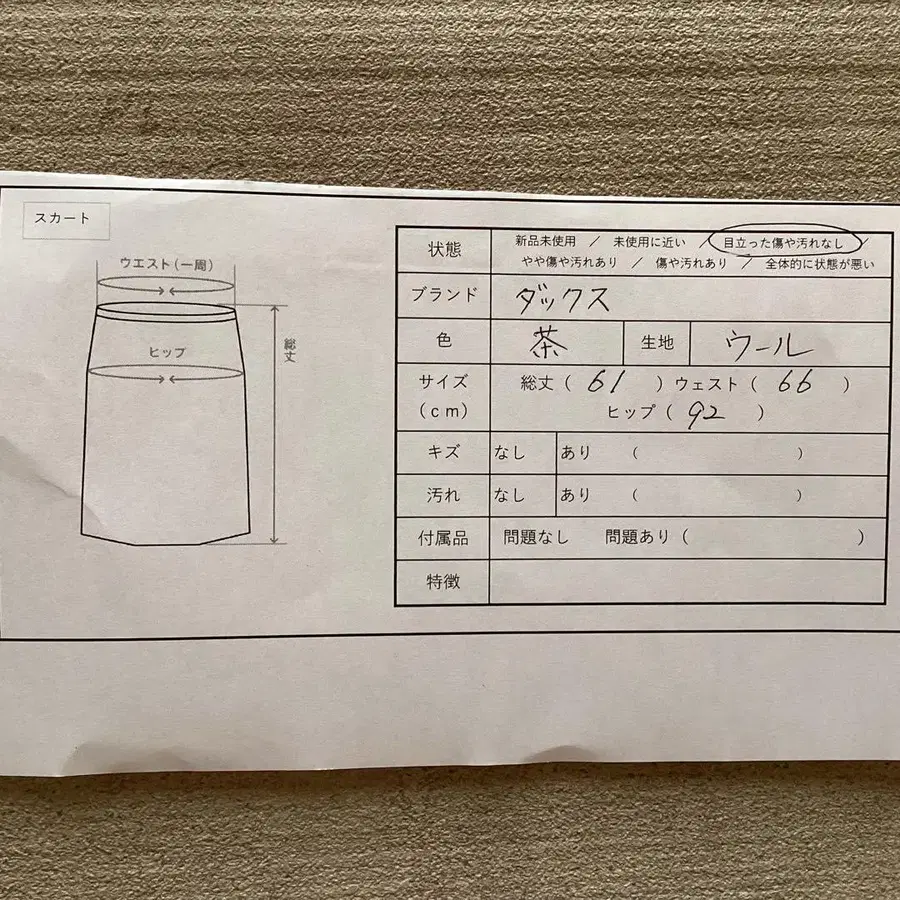 スカート
ウエスト(一周)
ヒップ
総丈
状態
新品未使用 / 未使用に近い / 目立った傷や汚れなし /
やや傷や汚れあり / 傷や汚れあり / 全体的に状態が悪い
ブランド ダックス
色 茶 生地 ウール
サイズ(cm) 総丈( 61 )ウェスト( 66 )
ヒップ( 92 )
キズ なし あり ( )
汚れ なし あり ( )
付属品 問題なし 問題あり( )
特徴